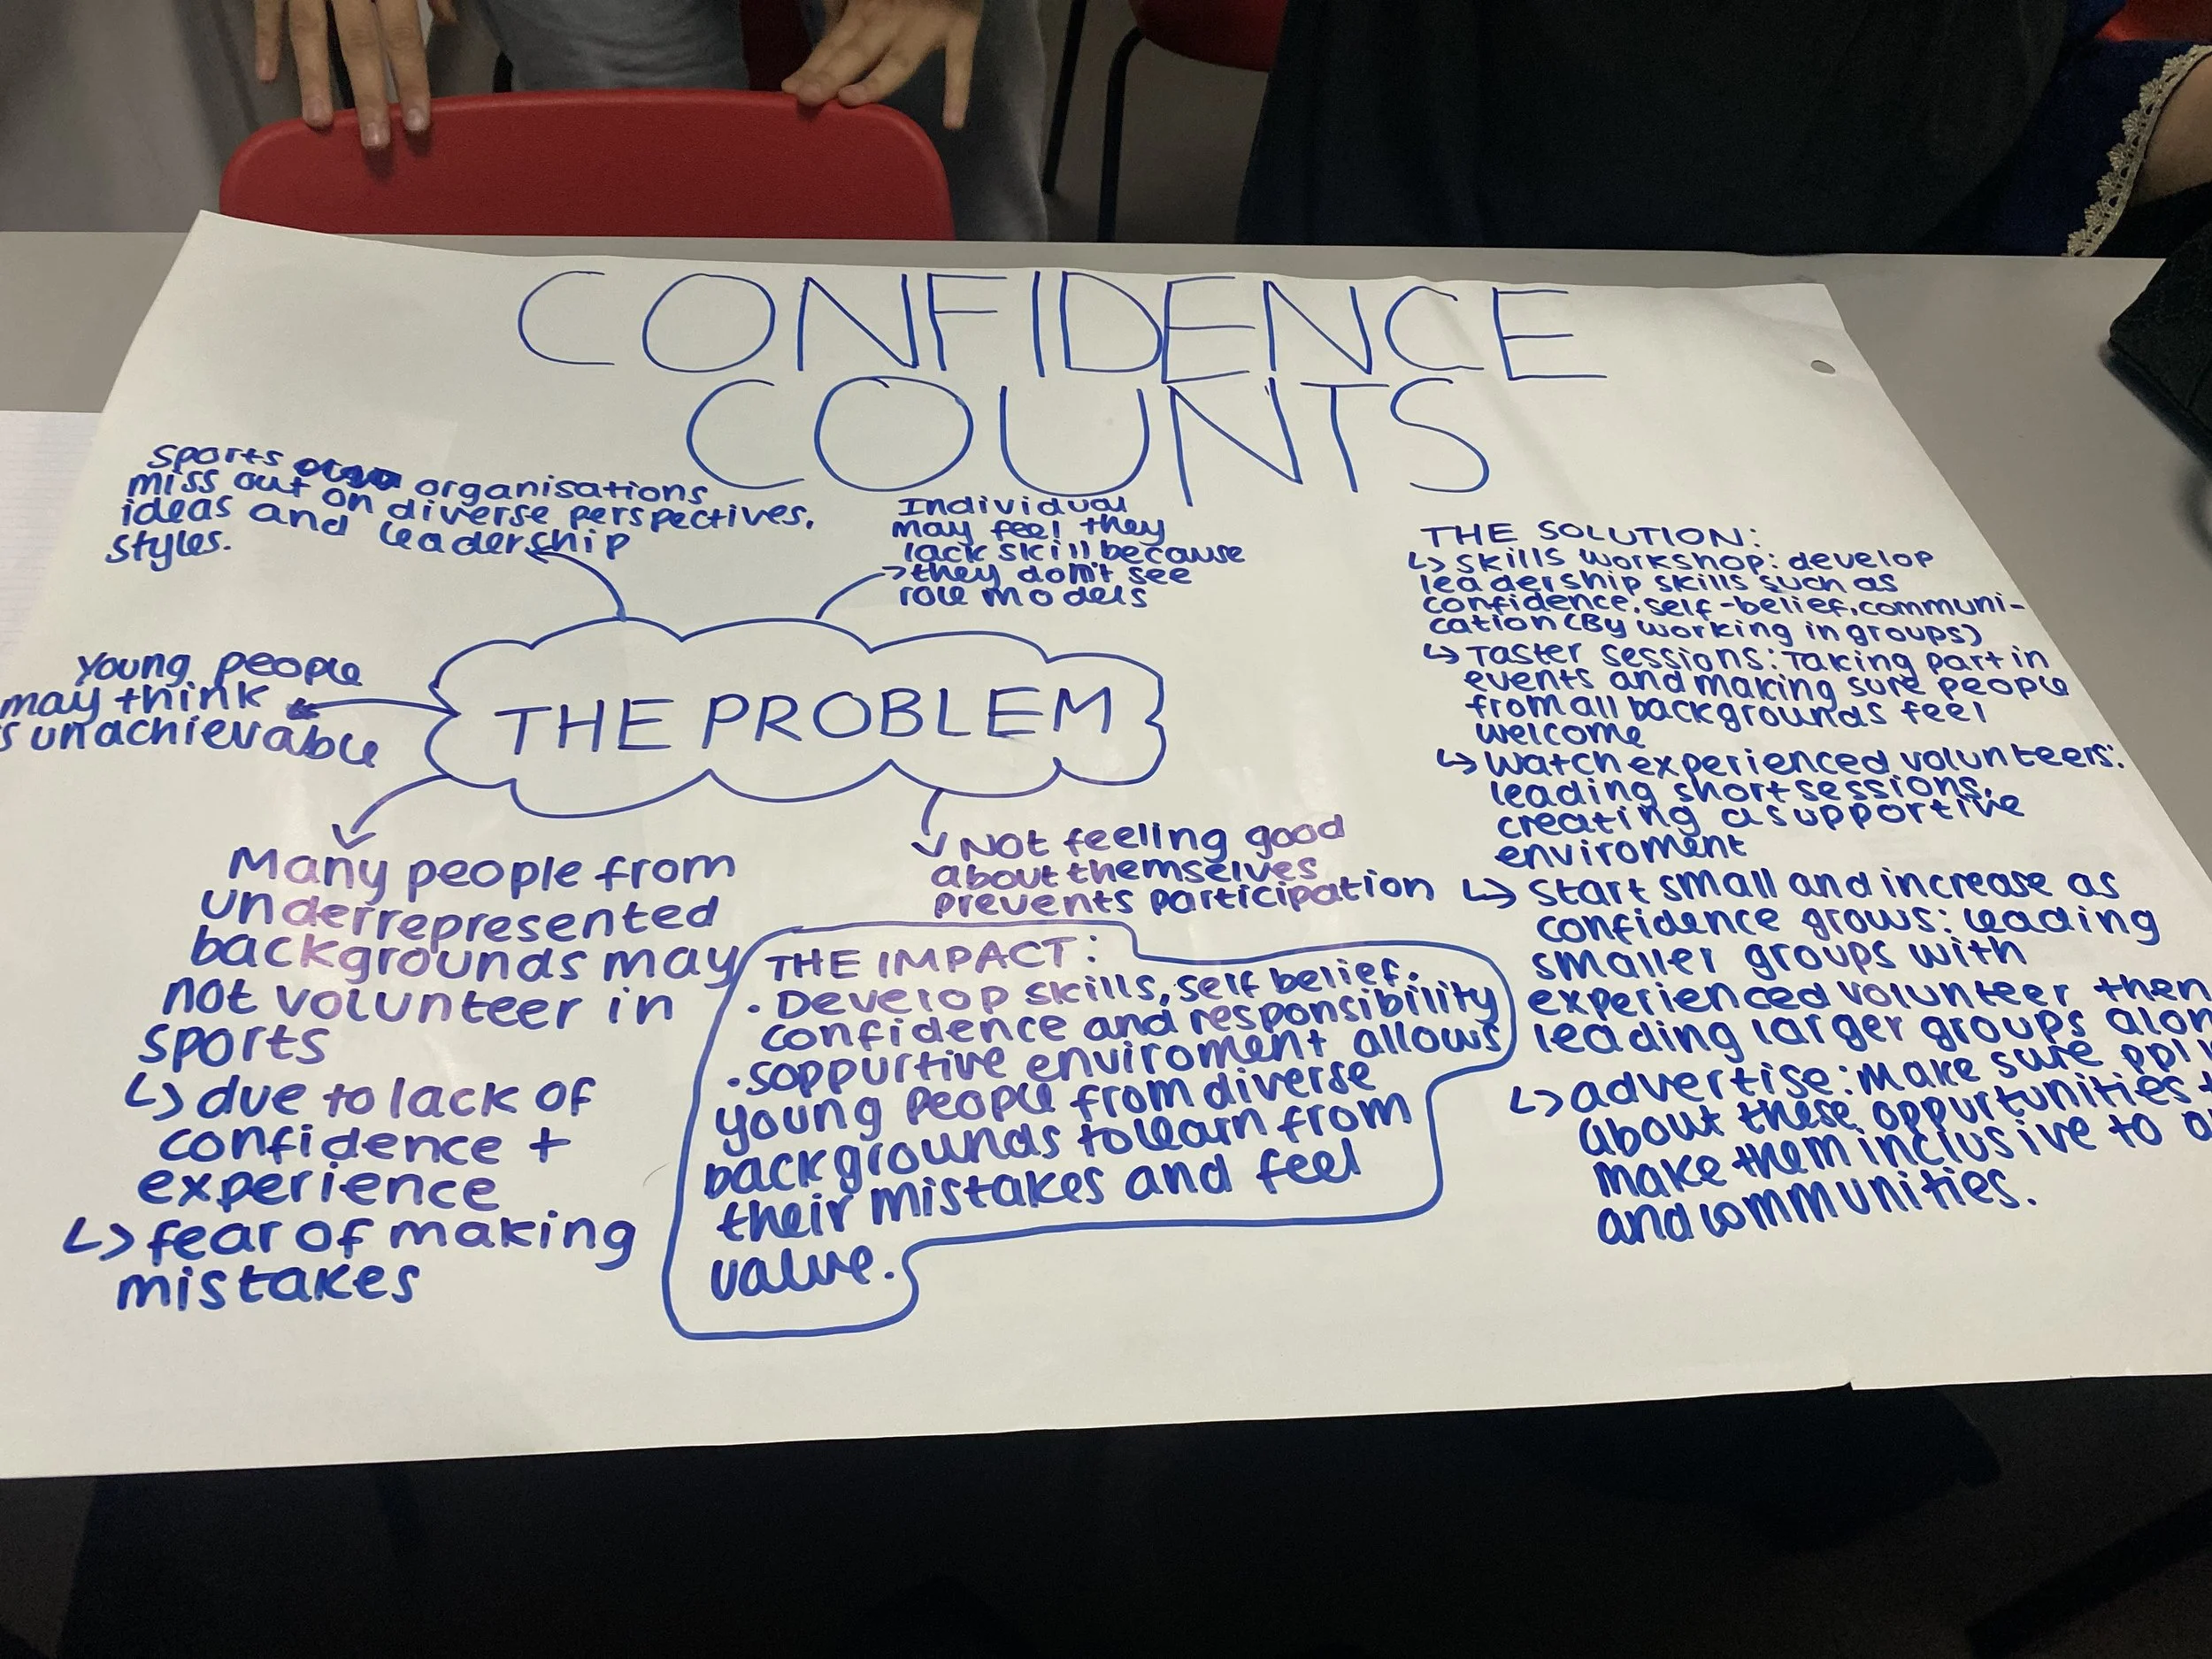 CONFIDENCE
COUNTS
Sports organisations
miss out on diverse perspectives,
ideas and leadership
styles.
Individual
may feel they
lack skill because
they don't see
role models
young people
may think
unachievable
THE PROBLEM
Many people from
underrepresented
backgrounds may
not volunteer in
sports
↳ due to lack of
confidence +
experience
↳ fear of making
mistakes
Not feeling good
about themselves
prevents participation
THE IMPACT:
• Develop skills, self belief.
confidence and responsibility
• soppurtive enviroment allows
young people from diverse
backgrounds to learn from
their mistakes and feel
value.
THE SOLUTION:
↳ skills workshop: develop
leadership skills such as
confidence, self-belief, communi-
cation (By working in groups)
↳ Taster sessions: Taking part in
events and making sure people
from all backgrounds feel
welcome
↳ watch experienced volunteers:
leading short sessions,
creating a supportive
enviroment
↳ start small and increase as
confidence grows: leading
smaller groups with
experienced volunteer then
leading larger groups
↳ advertise: Make sure ppl
about these oppurtunities
make them inclusive to
and communities.